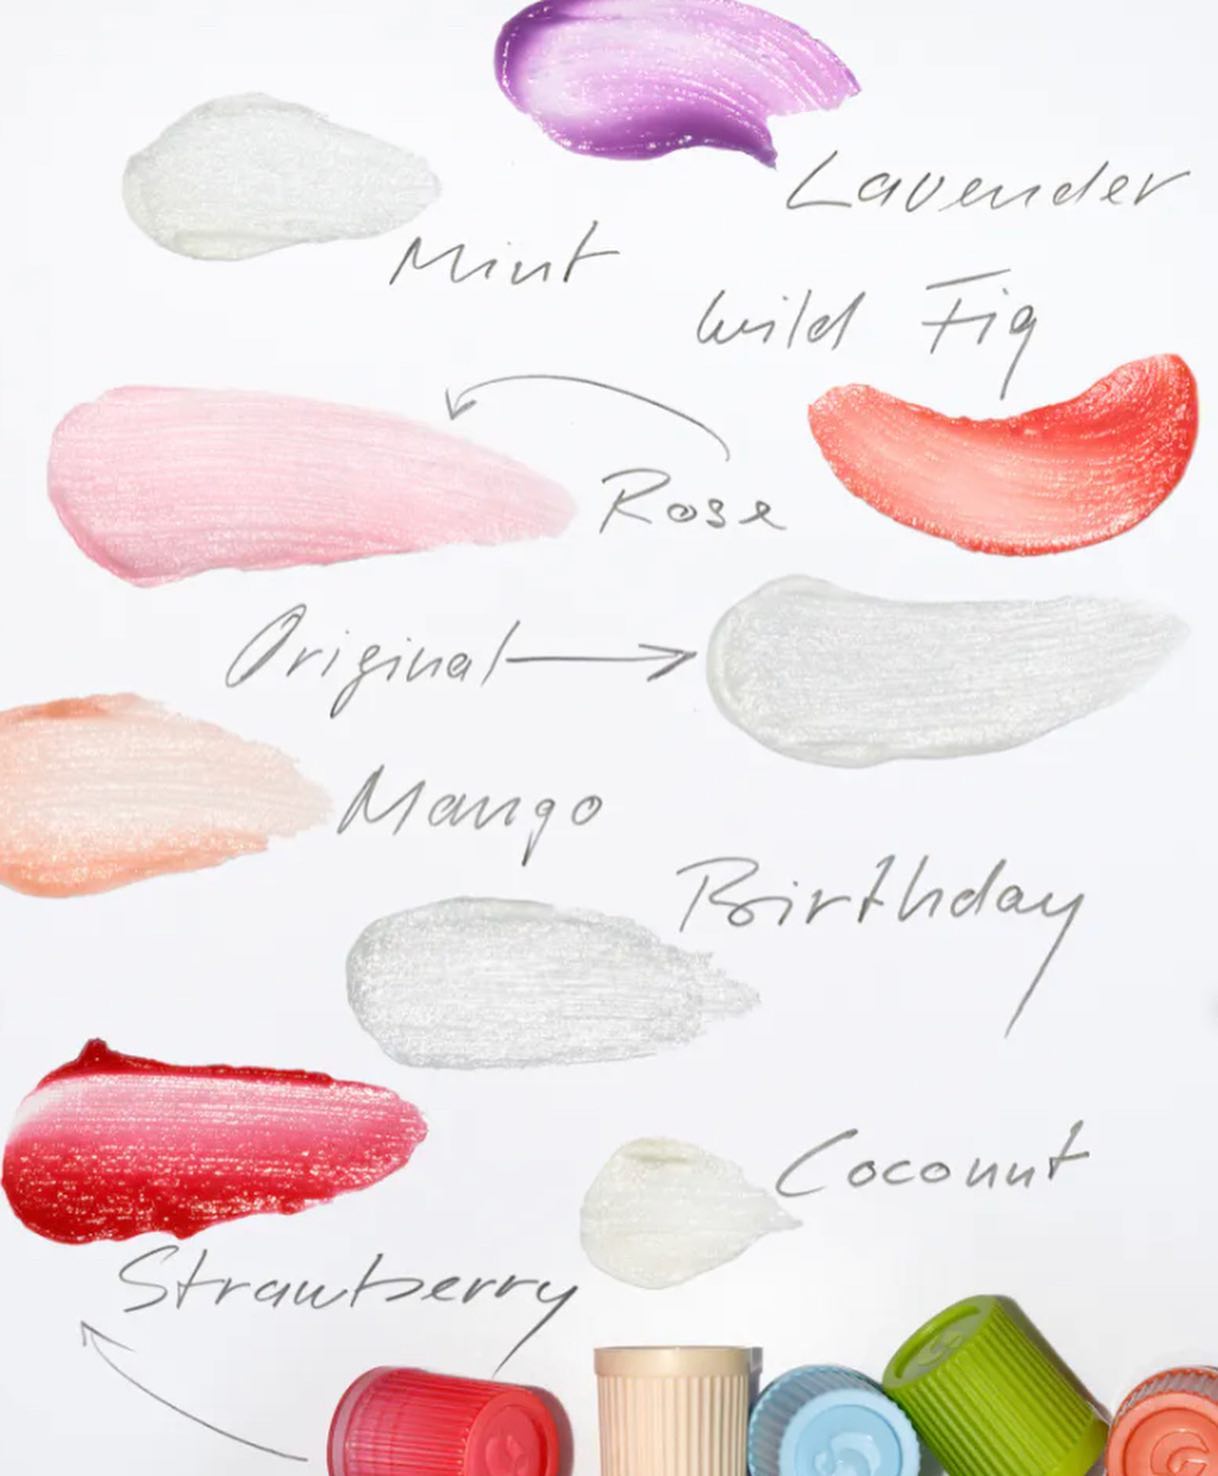 Lavender
Mint
Wild Fig
Rose
Original
Mango
Birthday
Coconut
Strawberry